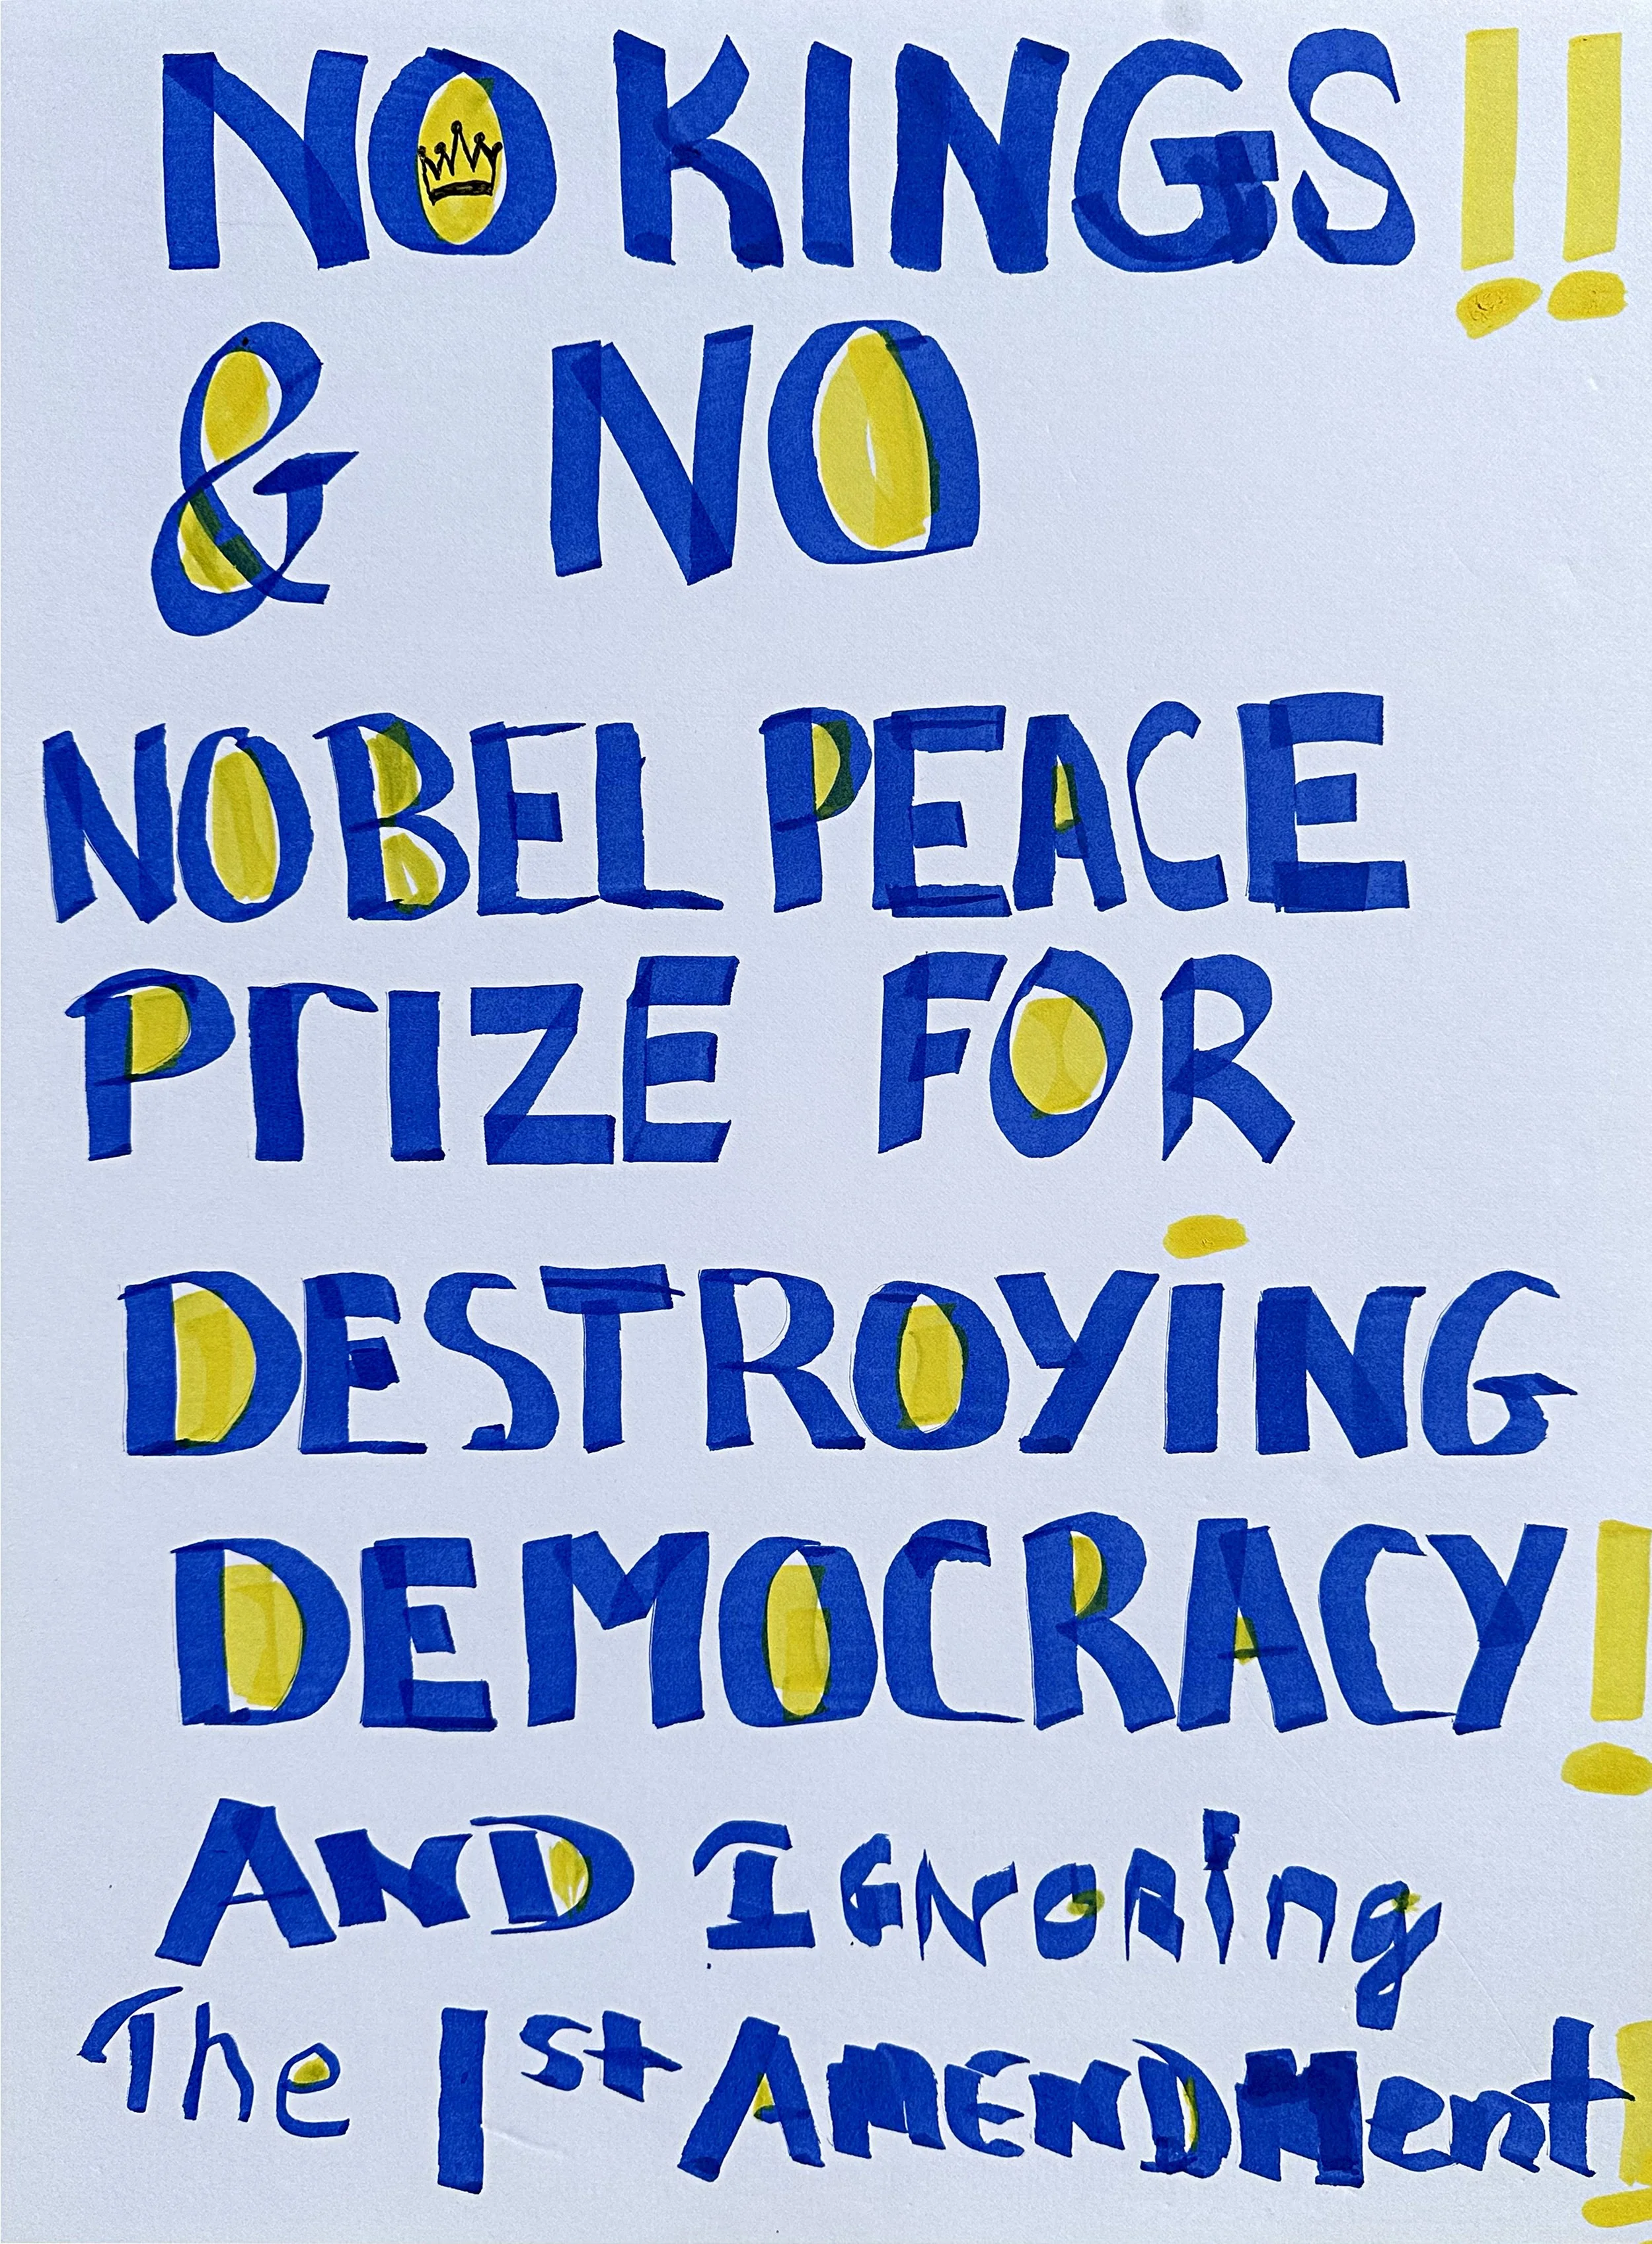 NO KINGS!!
& NO
NOBEL PEACE
PrIZE FOR
DESTROYiNG
DEMOCRACY!
AND IGNORing
The 1st AMENDMent!